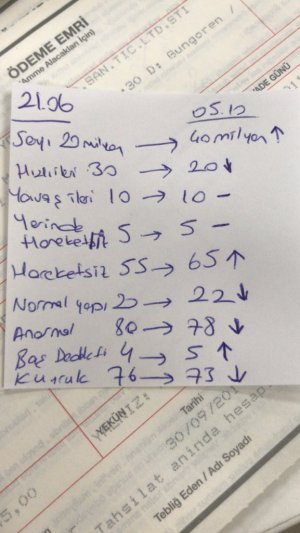 ÖDEME EMRİ
(Amme Alacakları İçin)
.BAN.TIC.LTD.STI
:30 D: Gungoren /
ADE GÜNÜ
21.06 05.12
Sayı 20 milyon → 40 milyon ↑
Hızlı ileri 30 → 20 ↓
Yavaş ileri 10 → 10 –
Yerinde
Hareketli 5 → 5 –
Hareketsiz 55 → 65 ↑
Normal yapı 20 → 22 ↓
Anormal 80 → 78 ↓
Baş Defekti 4 → 5 ↑
Kuyruk 76 → 73 ↓
YEKÜN
YALNIZ:
Tarihi
30/09/20
Tahsilat aninda hesap
Tebliğ Eden / Adı Soyadı
5,00